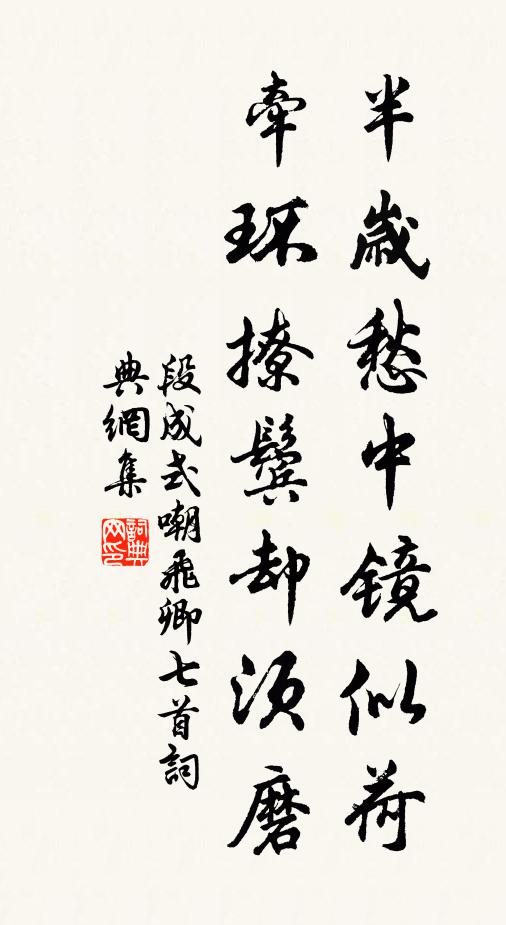 半歲愁中鏡似荷
牽環撩鬢却須磨
段成式嘲飛卿七首詞
典網集
詞典網印